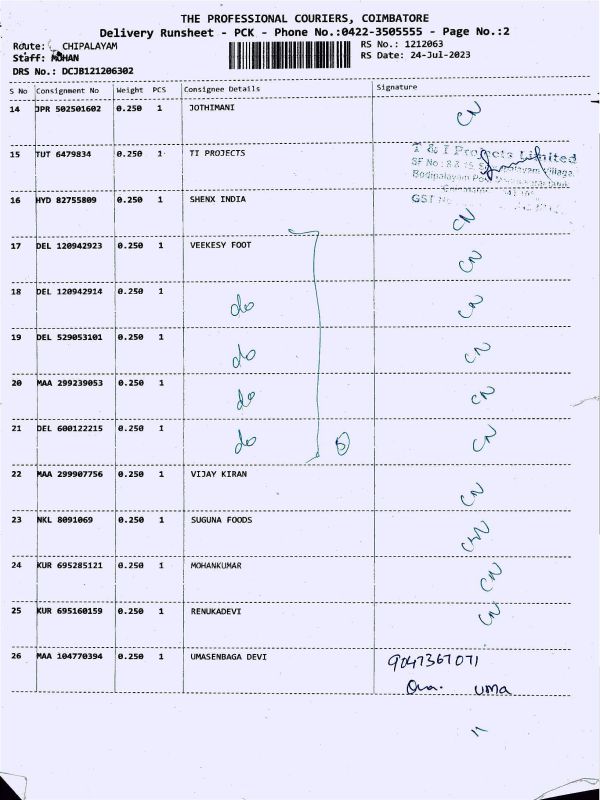 THE PROFESSIONAL COURIERS, COIMBATORE
Delivery Runsheet - PCK - Phone No.:0422-3505555 - Page No.:2
Route: CHIPALAYAM RS No.: 1212063
Staff: MOHAN RS Date: 24-Jul-2023
DRS No.: DCJB121206302
S No Consignment No Weight PCS Consignee Details Signature
14 JPR 502501602 0.250 1 JOTHIMANI CN
15 TUT 6479834 0.250 1 TI PROJECTS T & I Projects Limited
SF No : 8 & 15, Village,
Bodipalayam Post
GST No
16 HYD 82755809 0.250 1 SHENX INDIA CN
17 DEL 120942923 0.250 1 VEEKESY FOOT CN
18 DEL 120942914 0.250 1 do CN
19 DEL 529053101 0.250 1 do CN
20 MAA 299239053 0.250 1 do CN
21 DEL 600122215 0.250 1 do 5 CN
22 MAA 299907756 0.250 1 VIJAY KIRAN CN
23 NKL 8091069 0.250 1 SUGUNA FOODS CN
24 KUR 695285121 0.250 1 MOHANKUMAR CN
25 KUR 695160159 0.250 1 RENUKADEVI CN
26 MAA 104770394 0.250 1 UMASENBAGA DEVI 9047367071
uma
11